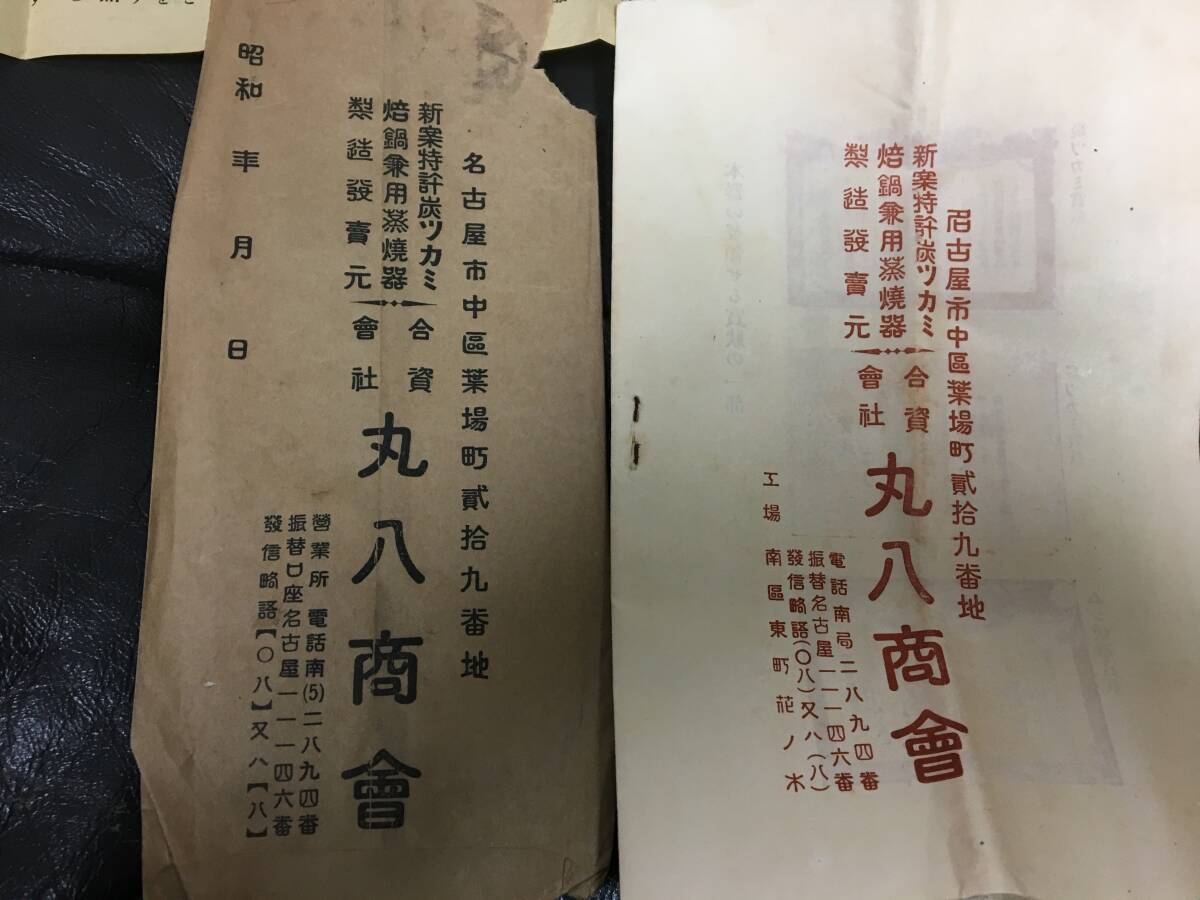 名古屋市中區葉場町貳拾九番地
新案特許炭ツカミ
焙鍋兼用蒸燒器
製造發賣元
合資
會社
丸八商會
營業所 電話南(5)二八九四番
振替口座名古屋一一一四六番
發信略語【〇八】又ハ【八】
昭和 年 月 日
名古屋市中區葉場町貳拾九番地
新案特許炭ツカミ
焙鍋兼用蒸燒器
製造發賣元
合資
會社
丸八商會
電話南局二八九四番
振替名古屋一一一四六番
發信略語(〇八)又ハ(八)
工場 南區東町花ノ木